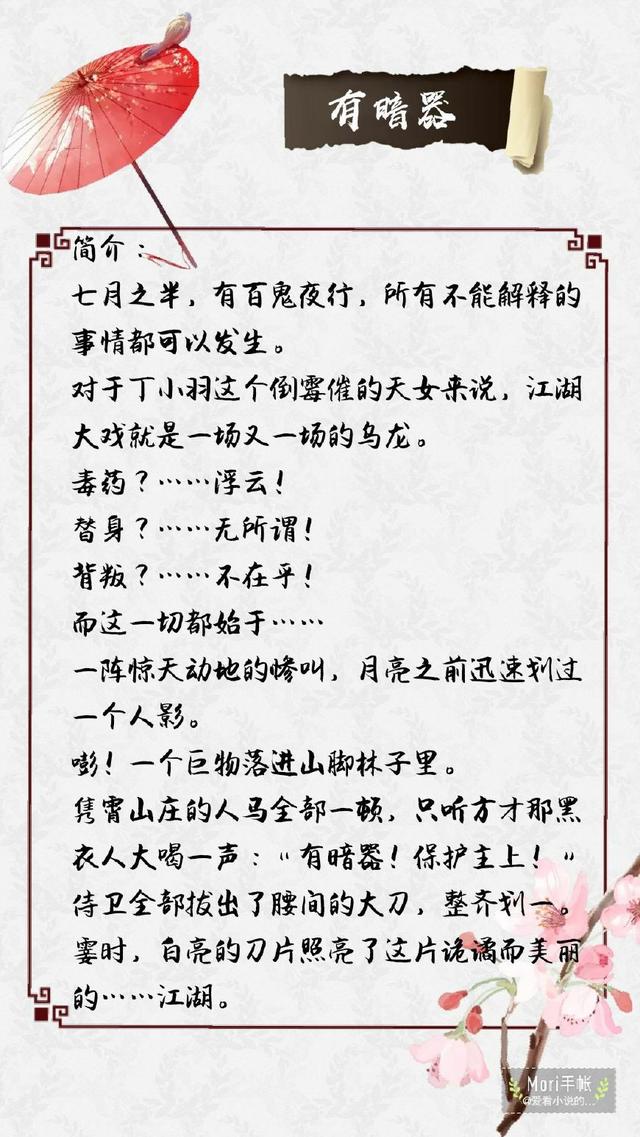 有暗器
简介：
七月之半，有百鬼夜行，所有不能解释的
事情都可以发生。
对于丁小羽这个倒霉催的天女来说，江湖
大戏就是一场又一场的乌龙。
毒药？……浮云！
替身？……无所谓！
背叛？……不在乎！
而这一切都始于……
一阵惊天动地的惨叫，月亮之前迅速划过
一个人影。
嘭！一个巨物落进山脚林子里。
隽霄山庄的人马全部一顿，只听方才那黑
衣人大喝一声：“有暗器！保护主上！”
侍卫全部拔出了腰间的大刀，整齐划一。
霎时，白亮的刀片照亮了这片诡谲而美丽
的……江湖。
Mori手帐
@爱看小说的...